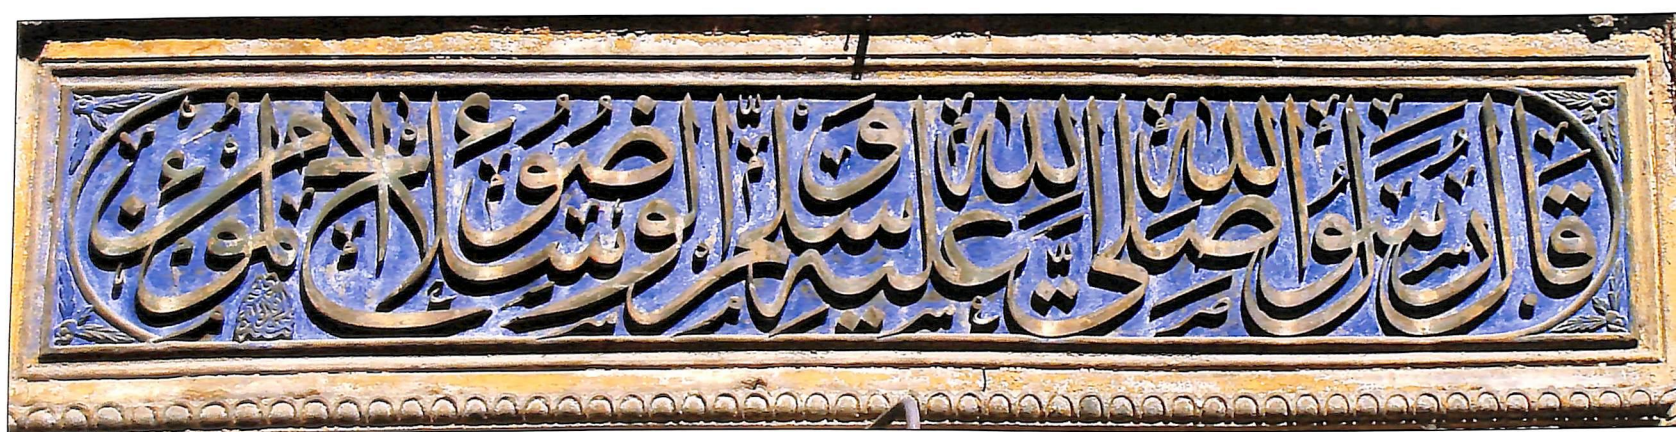 قَالَ رَسُولُ اللهِ صَلَّى اللهُ عَلَيْهِ وَسَلَّمَ الْوُضُوءُ سِلَاحُ الْمُؤْمِنِ